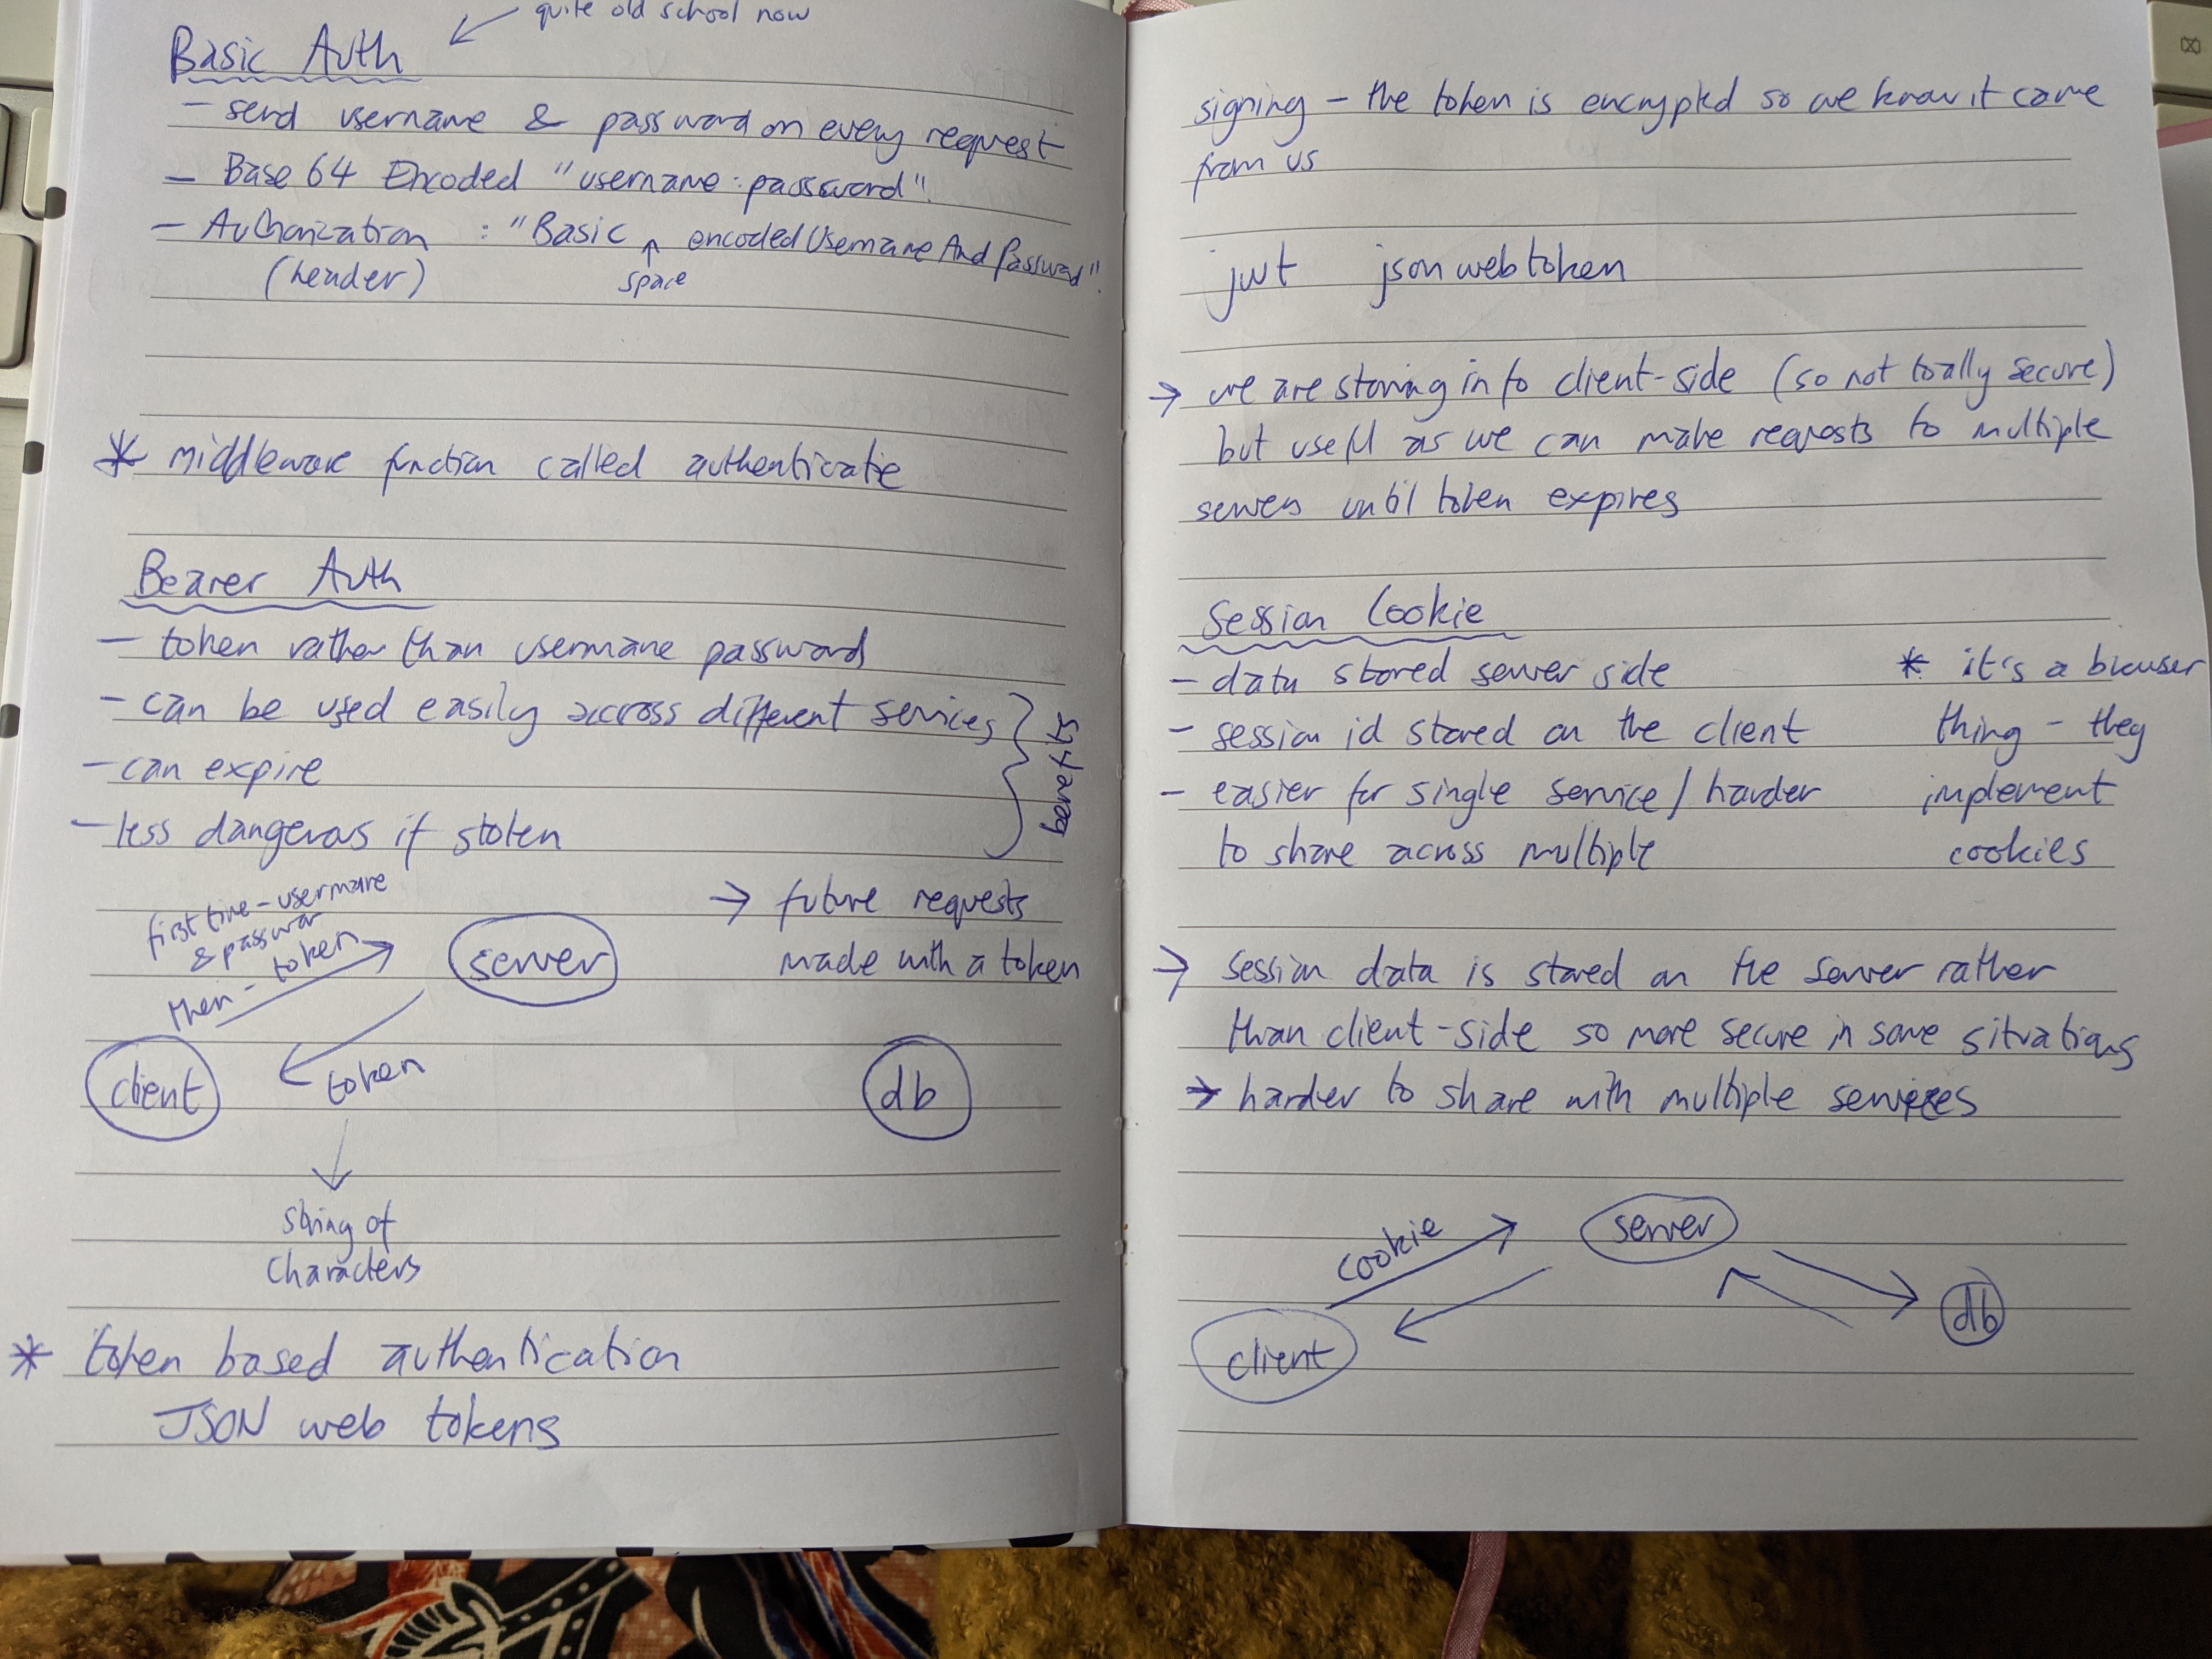 quite old school now
Basic Auth
- send username & password on every request
- Base 64 Encoded "username:password".
- Authorization : "Basic encodedUsernameAndPassword".
(header)
space
* middleware function called authenticate
Bearer Auth
- token rather than username password
- can be used easily accross different services
- can expire
- less dangerous if stolen
benefits
first time - username
& password
then - token
server
→ future requests
made with a token
client
token
db
string of
characters
* token based authentication
JSON web tokens
signing - the token is encrypted so we know it came
from us
jwt jsonwebtoken
→ we are storing info client-side (so not totally secure)
but useful as we can make requests to multiple
servers until token expires
Session Cookie
- data stored server side
- session id stored on the client
- easier for single service / harder
to share across multiple
* it's a browser
thing - they
implement
cookies
→ session data is stored on the server rather
than client-side so more secure in some situations
→ harder to share with multiple services
cookie
server
db
client